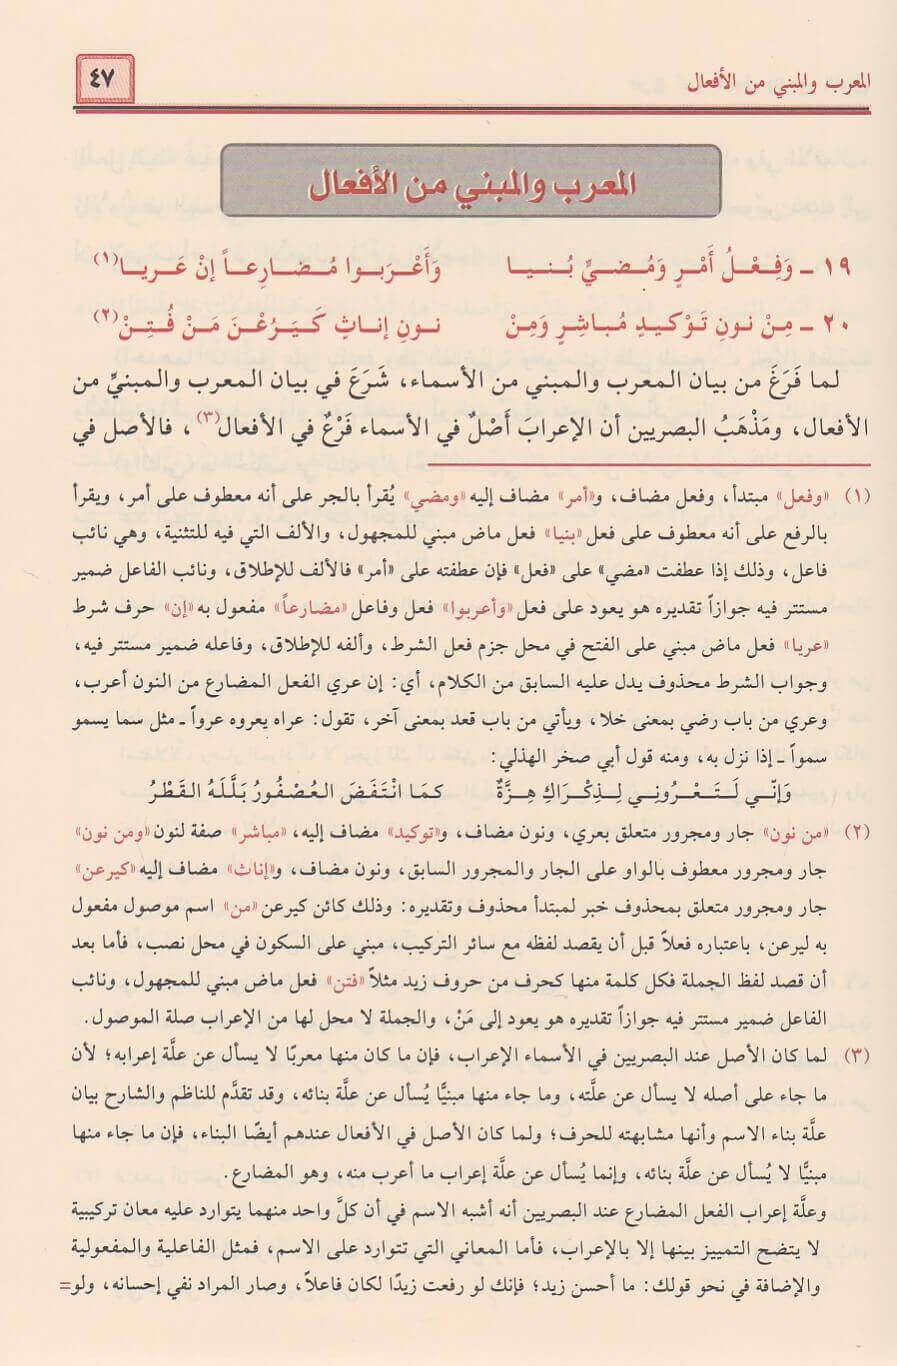 المعرب والمبني من الأفعال
٤٧
المعرب والمبني من الأفعال
١٩ ـ وَفِعْلُ أَمْرٍ وَمُضيٍّ بُنيا وَأَعْرَبوا مُضارِعاً إنْ عَريا(١)
٢٠ ـ مِنْ نونِ تَوْكيدٍ مُباشِرٍ وَمِنْ نونِ إناثٍ كَيَرُعْنَ مَنْ فُتِنْ(٢)
لما فَرَغَ من بيان المعرب والمبني من الأسماء، شَرَعَ في بيان المعرب والمبنيِّ من
الأفعال، ومَذْهَبُ البصريين أن الإعرابَ أَصْلٌ في الأسماء فَرْعٌ في الأفعال(٣)، فالأصل في
(١) «وفعل» مبتدأ، وفعل مضاف، و«أمر» مضاف إليه «ومضي» يُقرأ بالجر على أنه معطوف على أمر، ويقرأ
بالرفع على أنه معطوف على فعل «بنيا» فعل ماض مبني للمجهول، والألف التي فيه للتثنية، وهي نائب
فاعل، وذلك إذا عطفت «مضي» على «فعل» فإن عطفته على «أمر» فالألف للإطلاق، ونائب الفاعل ضمير
مستتر فيه جوازاً تقديره هو يعود على فعل «وأعربوا» فعل وفاعل «مضارعاً» مفعول به «إن» حرف شرط
«عريا» فعل ماض مبني على الفتح في محل جزم فعل الشرط، وألفه للإطلاق، وفاعله ضمير مستتر فيه،
وجواب الشرط محذوف يدل عليه السابق من الكلام، أي: إن عري الفعل المضارع من النون أعرب،
وعري من باب رضي بمعنى خلا، ويأتي من باب قعد بمعنى آخر، تقول: عراه يعروه عرواً ـ مثل سما يسمو
سمواً ـ إذا نزل به، ومنه قول أبي صخر الهذلي:
وَإنّي لَتَعْرُوني لِذِكْرَاكِ هِزَّةٌ كمَا انْتَفَضَ العُصْفُورُ بَلَّلَهُ القَطْرُ
(٢) «من نون» جار ومجرور متعلق بعري، ونون مضاف، و«توكيد» مضاف إليه، «مباشر» صفة لنون «ومن نون»
جار ومجرور معطوف بالواو على الجار والمجرور السابق، ونون مضاف، و«إناث» مضاف إليه «كيرعن»
جار ومجرور متعلق بمحذوف خبر لمبتدأ محذوف وتقديره: وذلك كائن كيرعن «من» اسم موصول مفعول
به ليرعن، باعتباره فعلاً قبل أن يقصد لفظه مع سائر التركيب، مبني على السكون في محل نصب، فأما بعد
أن قصد لفظ الجملة فكل كلمة منها كحرف من حروف زيد مثلاً «فتن» فعل ماض مبني للمجهول، ونائب
الفاعل ضمير مستتر فيه جوازاً تقديره هو يعود إلى مَنْ، والجملة لا محل لها من الإعراب صلة الموصول.
(٣) لما كان الأصل عند البصريين في الأسماء الإعراب، فإن ما كان منها معربًا لا يسأل عن علَّة إعرابه؛ لأن
ما جاء على أصله لا يسأل عن علَّته، وما جاء منها مبنيًّا يُسأل عن علَّة بنائه، وقد تقدَّم للناظم والشارح بيان
علَّة بناء الاسم وأنها مشابهته للحرف؛ ولما كان الأصل في الأفعال عندهم أيضًا البناء، فإن ما جاء منها
مبنيًّا لا يُسأل عن علَّة بنائه، وإنما يُسأل عن علَّة إعراب ما أعرب منه، وهو المضارع.
وعلَّة إعراب الفعل المضارع عند البصريين أنه أشبه الاسم في أن كلَّ واحد منهما يتوارد عليه معان تركيبية
لا يتضح التمييز بينها إلا بالإعراب، فأما المعاني التي تتوارد على الاسم، فمثل الفاعلية والمفعولية
والإضافة في نحو قولك: ما أحسن زيد؛ فإنك لو رفعت زيدًا لكان فاعلاً، وصار المراد نفي إحسانه، ولو=